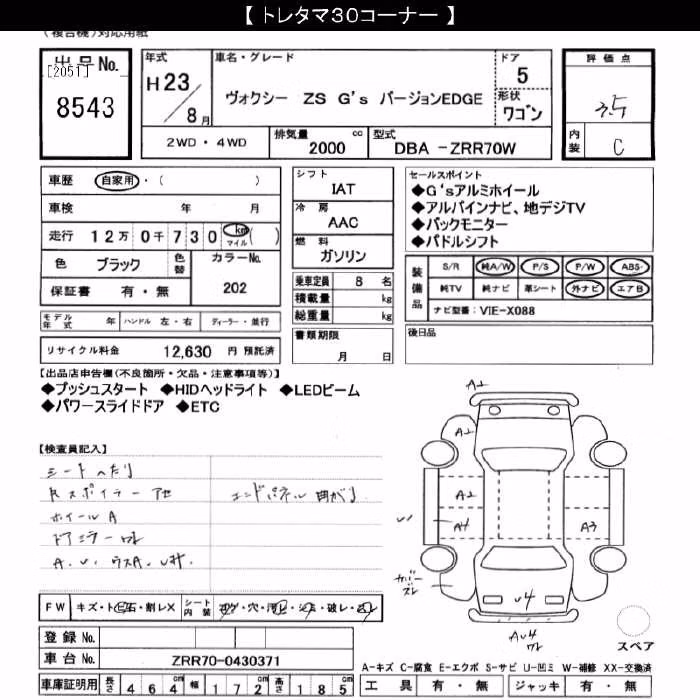 【 トレタマ30コーナー 】
(複合機)対応用紙
出品No.
[2051]
8543
年式
H23/8月
車名・グレード
ヴォクシー ZS G's バージョンEDGE
ドア
5
形状
ワゴン
2WD・4WD
排気量 cc
2000
型式
DBA -ZRR70W
評価点
3.5
内装
C
車歴 自家用・( )
車検 年 月
走行 12万0千730 km マイル ( )
色 ブラック 色替
カラーNo.
202
保証書 有・無
モデル年式 年 ハンドル 左・右 ディーラー・並行
リサイクル料金 12,630 円 預託済
シフト
IAT
冷房
AAC
燃料
ガソリン
乗車定員 8 名
積載量 kg
総重量 kg
書類期限
月 日
セールスポイント
◆G'sアルミホイール
◆アルパインナビ、地デジTV
◆バックモニター
◆パドルシフト
装備品
S/R 純A/W P/S P/W ABS
純TV 純ナビ 革シート 外ナビ エアB
ナビ型番: VIE-X088
後日品
【出品店申告欄(不良箇所・欠品・注意事項等)】
◆プッシュスタート ◆HIDヘッドライト ◆LEDビーム
◆パワースライドドア ◆ETC
【検査員記入】
シートへたり
エンドパネル曲がり
ホイールA
A.U.
A2
A2
A2
A4
A3
U4
FW キズ・ト石・割レX シート内装
登録No.
車台No. ZRR70-0430371
車庫証明用 長さ 464cm 幅 172cm 高さ 185cm
スペア
A-キズ C-腐食 E-エクボ S-サビ U-凹ミ W-補修 XX-交換済
工具 有・無 ジャッキ 有・無